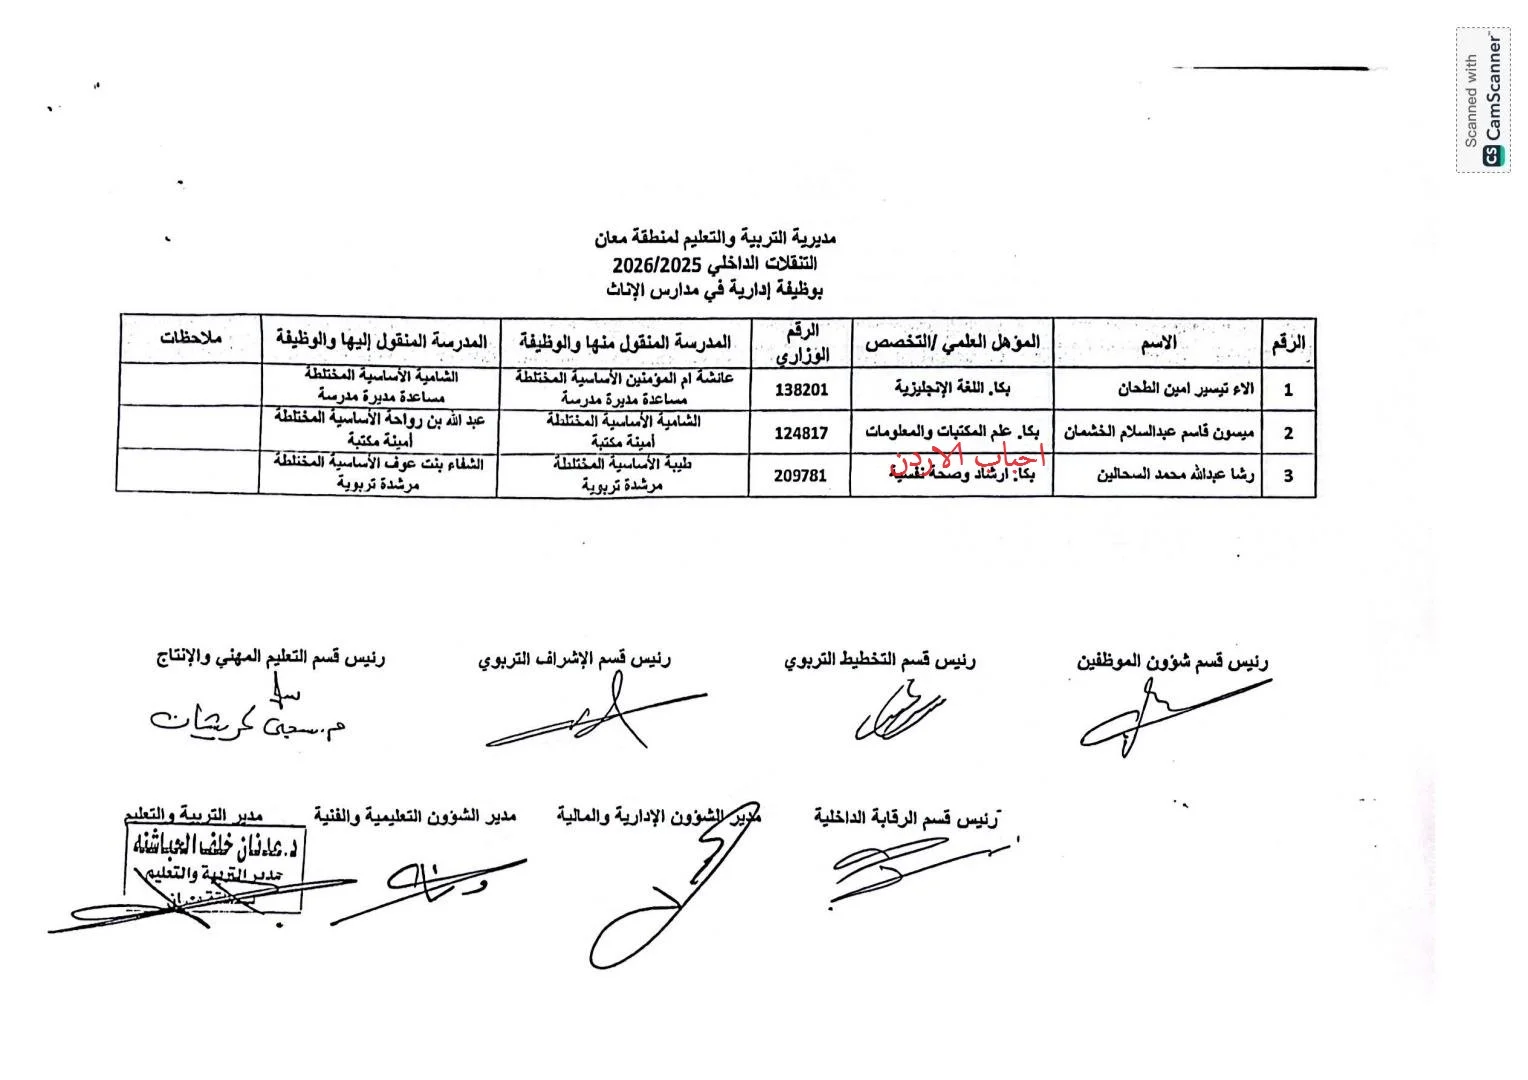 Scanned with
CS CamScanner
مديرية التربية والتعليم لمنطقة معان
التنقلات الداخلي 2026/2025
بوظيفة إدارية في مدارس الإناث
الرقم الاسم المؤهل العلمي /التخصص الرقم الوزاري المدرسة المنقول منها والوظيفة المدرسة المنقول إليها والوظيفة ملاحظات
1 الاء تيسير امين الطحان بكا. اللغة الإنجليزية 138201 عائشة ام المؤمنين الأساسية المختلطة مساعدة مديرة مدرسة الشامية الأساسية المختلطة مساعدة مديرة مدرسة
2 ميسون قاسم عبدالسلام الخشمان بكا. علم المكتبات والمعلومات 124817 الشامية الأساسية المختلطة أمينة مكتبة عبد الله بن رواحة الأساسية المختلطة أمينة مكتبة
احباب الاردن
3 رشا عبدالله محمد السحالين بكا. ارشاد وصحة نفسية 209781 طيبة الأساسية المختلطة مرشدة تربوية الشفاء بنت عوف الأساسية المختلطة مرشدة تربوية
رئيس قسم شؤون الموظفين رئيس قسم التخطيط التربوي رئيس قسم الإشراف التربوي رئيس قسم التعليم المهني والإنتاج
رئيس قسم الرقابة الداخلية مدير الشؤون الإدارية والمالية مدير الشؤون التعليمية والفنية مدير التربية والتعليم
د.عدنان خلف الحباشنه
مدير التربية والتعليم